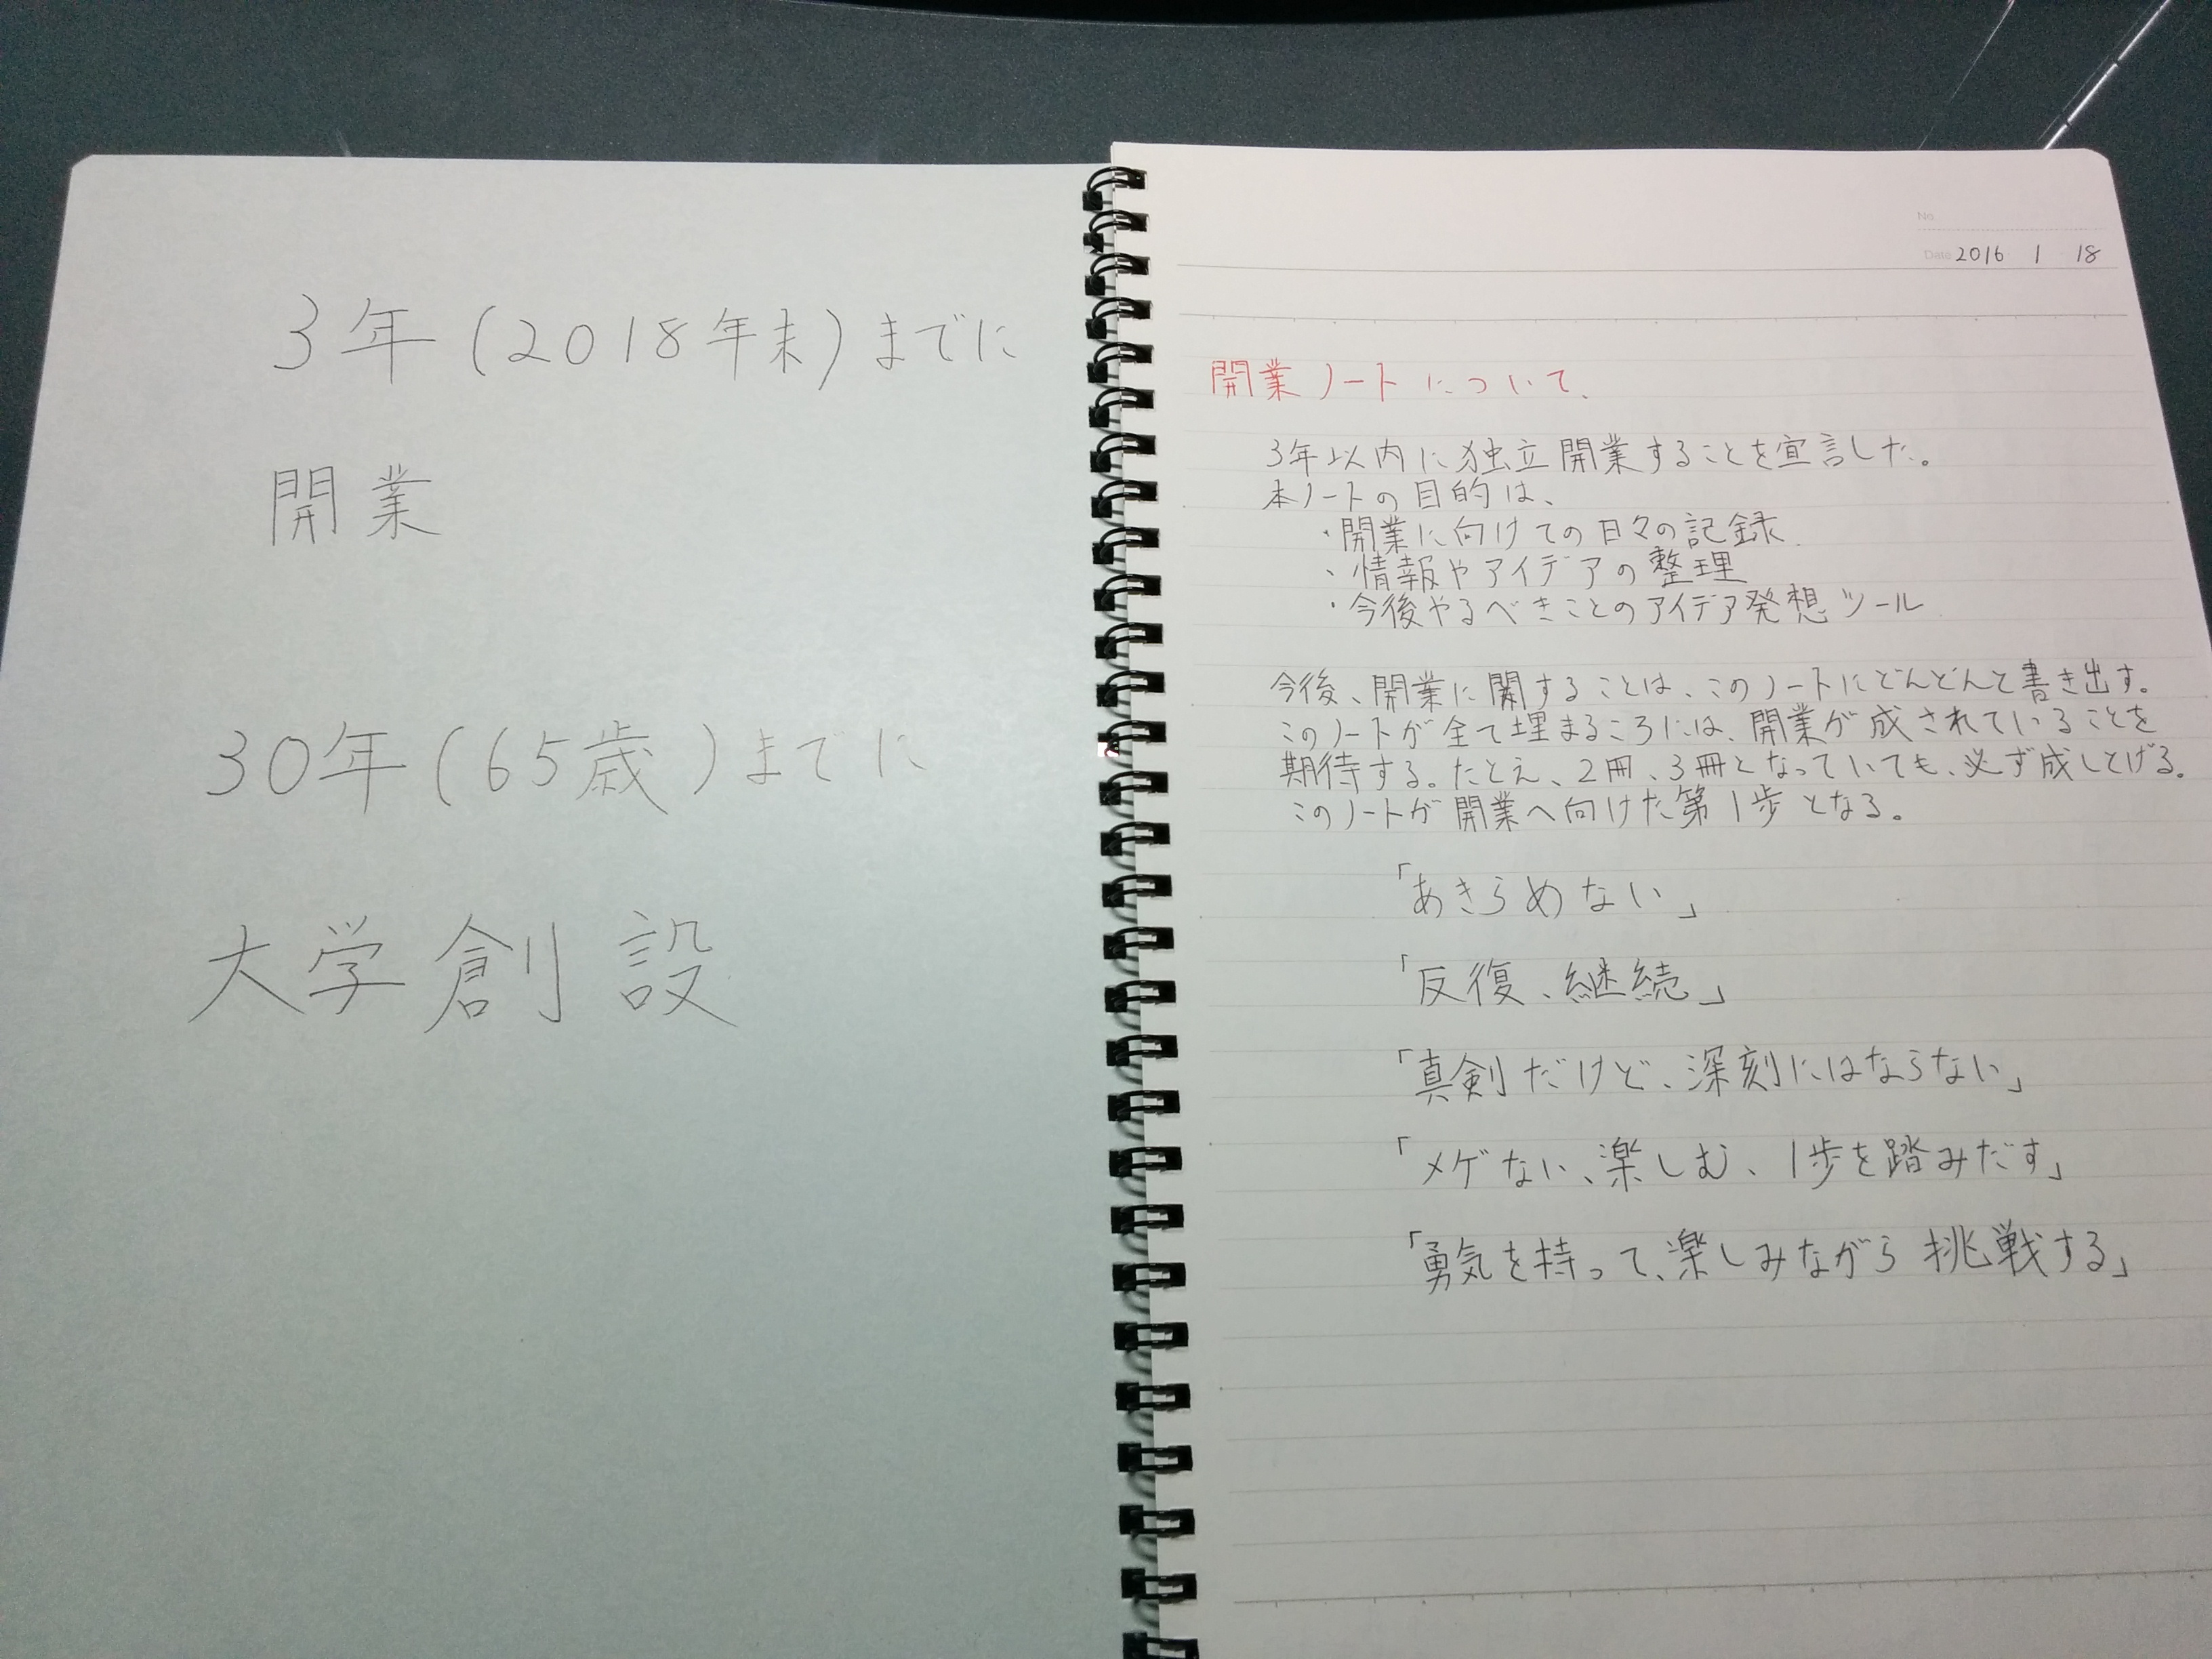 3年(2018年末)までに
開業
30年(65歳)までに
大学創設
No
Date 2016 1 18
開業ノートについて.
3年以内に独立開業することを宣言した。
本ノートの目的は、
・開業に向けての日々の記録.
・情報やアイデアの整理
・今後やるべきことのアイデア発想ツール
今後、開業に関することは、このノートにどんどんと書き出す。
このノートが全て埋まるころには、開業が成されていることを
期待する。たとえ、2冊、3冊となっていても、必ず成しとげる。
このノートが開業へ向けた第1歩となる。
「あきらめない」
「反復、継続」
「真剣だけど、深刻にはならない」
「メゲない、楽しむ、1歩を踏みだす」
「勇気を持って、楽しみながら挑戦する」